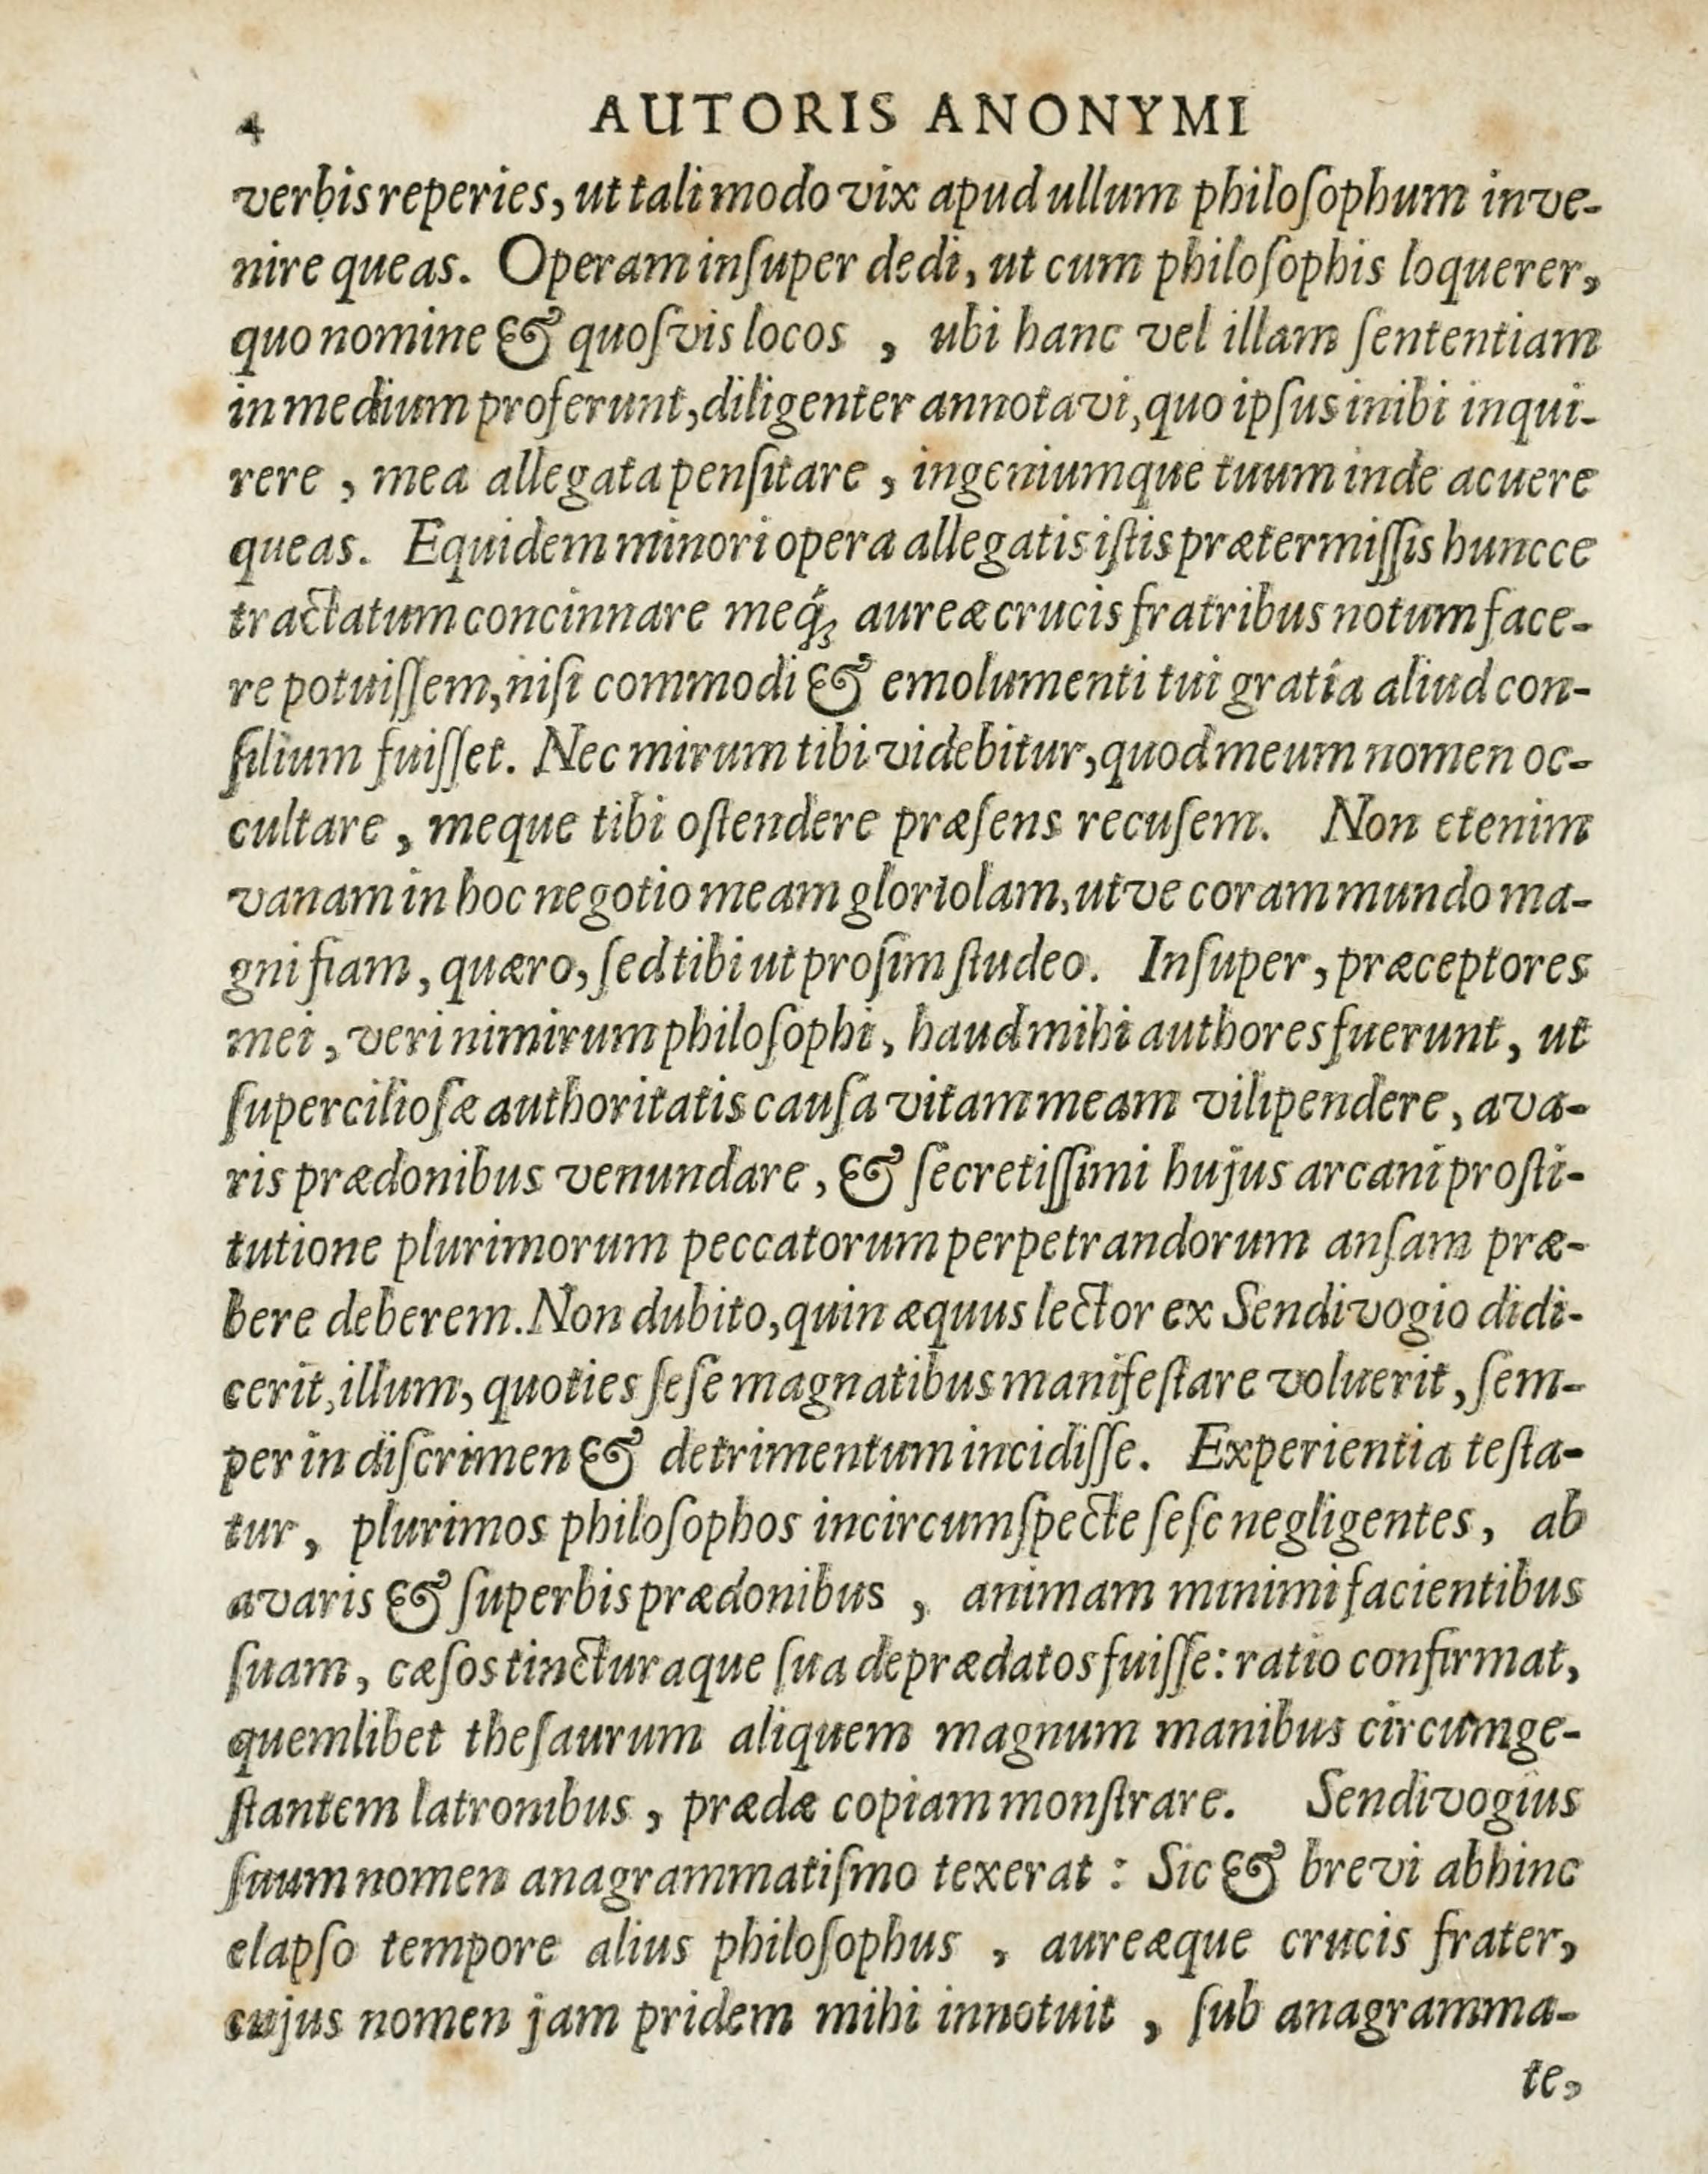 4 AUTORIS ANONYMI
verbis reperies, ut tali modo vix apud ullum philoſophum inve-
nire queas. Operam inſuper dedi, ut cum philoſophis loquerer,
quo nomine & quoſvis locos , ubi hanc vel illam ſententiam
in medium proferunt, diligenter annotavi, quo ipſus inibi inqui-
rere , mea allegata penſitare , ingeniumque tuum inde acuere
queas. Equidem minori opera allegatis iſtis prætermiſſis huncce
tractatum concinnare meq́ꝫ aureæ crucis fratribus notum face-
re potuiſſem, niſi commodi & emolumenti tui gratia aliud con-
ſilium fuiſſet. Nec mirum tibi videbitur, quod meum nomen oc-
cultare , meque tibi oſtendere præſens recuſem. Non etenim
vanam in hoc negotio meam gloriolam, utve coram mundo ma-
gni fiam , quæro, ſed tibi ut proſim ſtudeo. Inſuper, præceptores
mei , veri nimirum philoſophi , haud mihi authores fuerunt , ut
ſupercilioſæ authoritatis cauſa vitam meam vilipendere , ava-
ris prædonibus venundare , & ſecretiſſimi hujus arcani proſti-
tutione plurimorum peccatorum perpetrandorum anſam præ-
bere deberem. Non dubito, quin æquus lector ex Sendivogio didi-
cerit, illum, quoties ſeſe magnatibus manifeſtare voluerit , ſem-
per in diſcrimen & detrimentum incidiſſe. Experientia teſta-
tur , plurimos philoſophos incircumſpecte ſeſe negligentes , ab
avaris & ſuperbis prædonibus , animam minimi facientibus
ſuam , cæſos tincturaque ſua deprædatos fuiſſe: ratio confirmat,
quemlibet theſaurum aliquem magnum manibus circumge-
ſtantem latronibus , prædæ copiam monſtrare. Sendivogius
ſuum nomen anagrammatiſmo texerat : Sic & brevi abhinc
elapſo tempore alius philoſophus , aureæque crucis frater,
cujus nomen jam pridem mihi innotuit , ſub anagramma-
te,